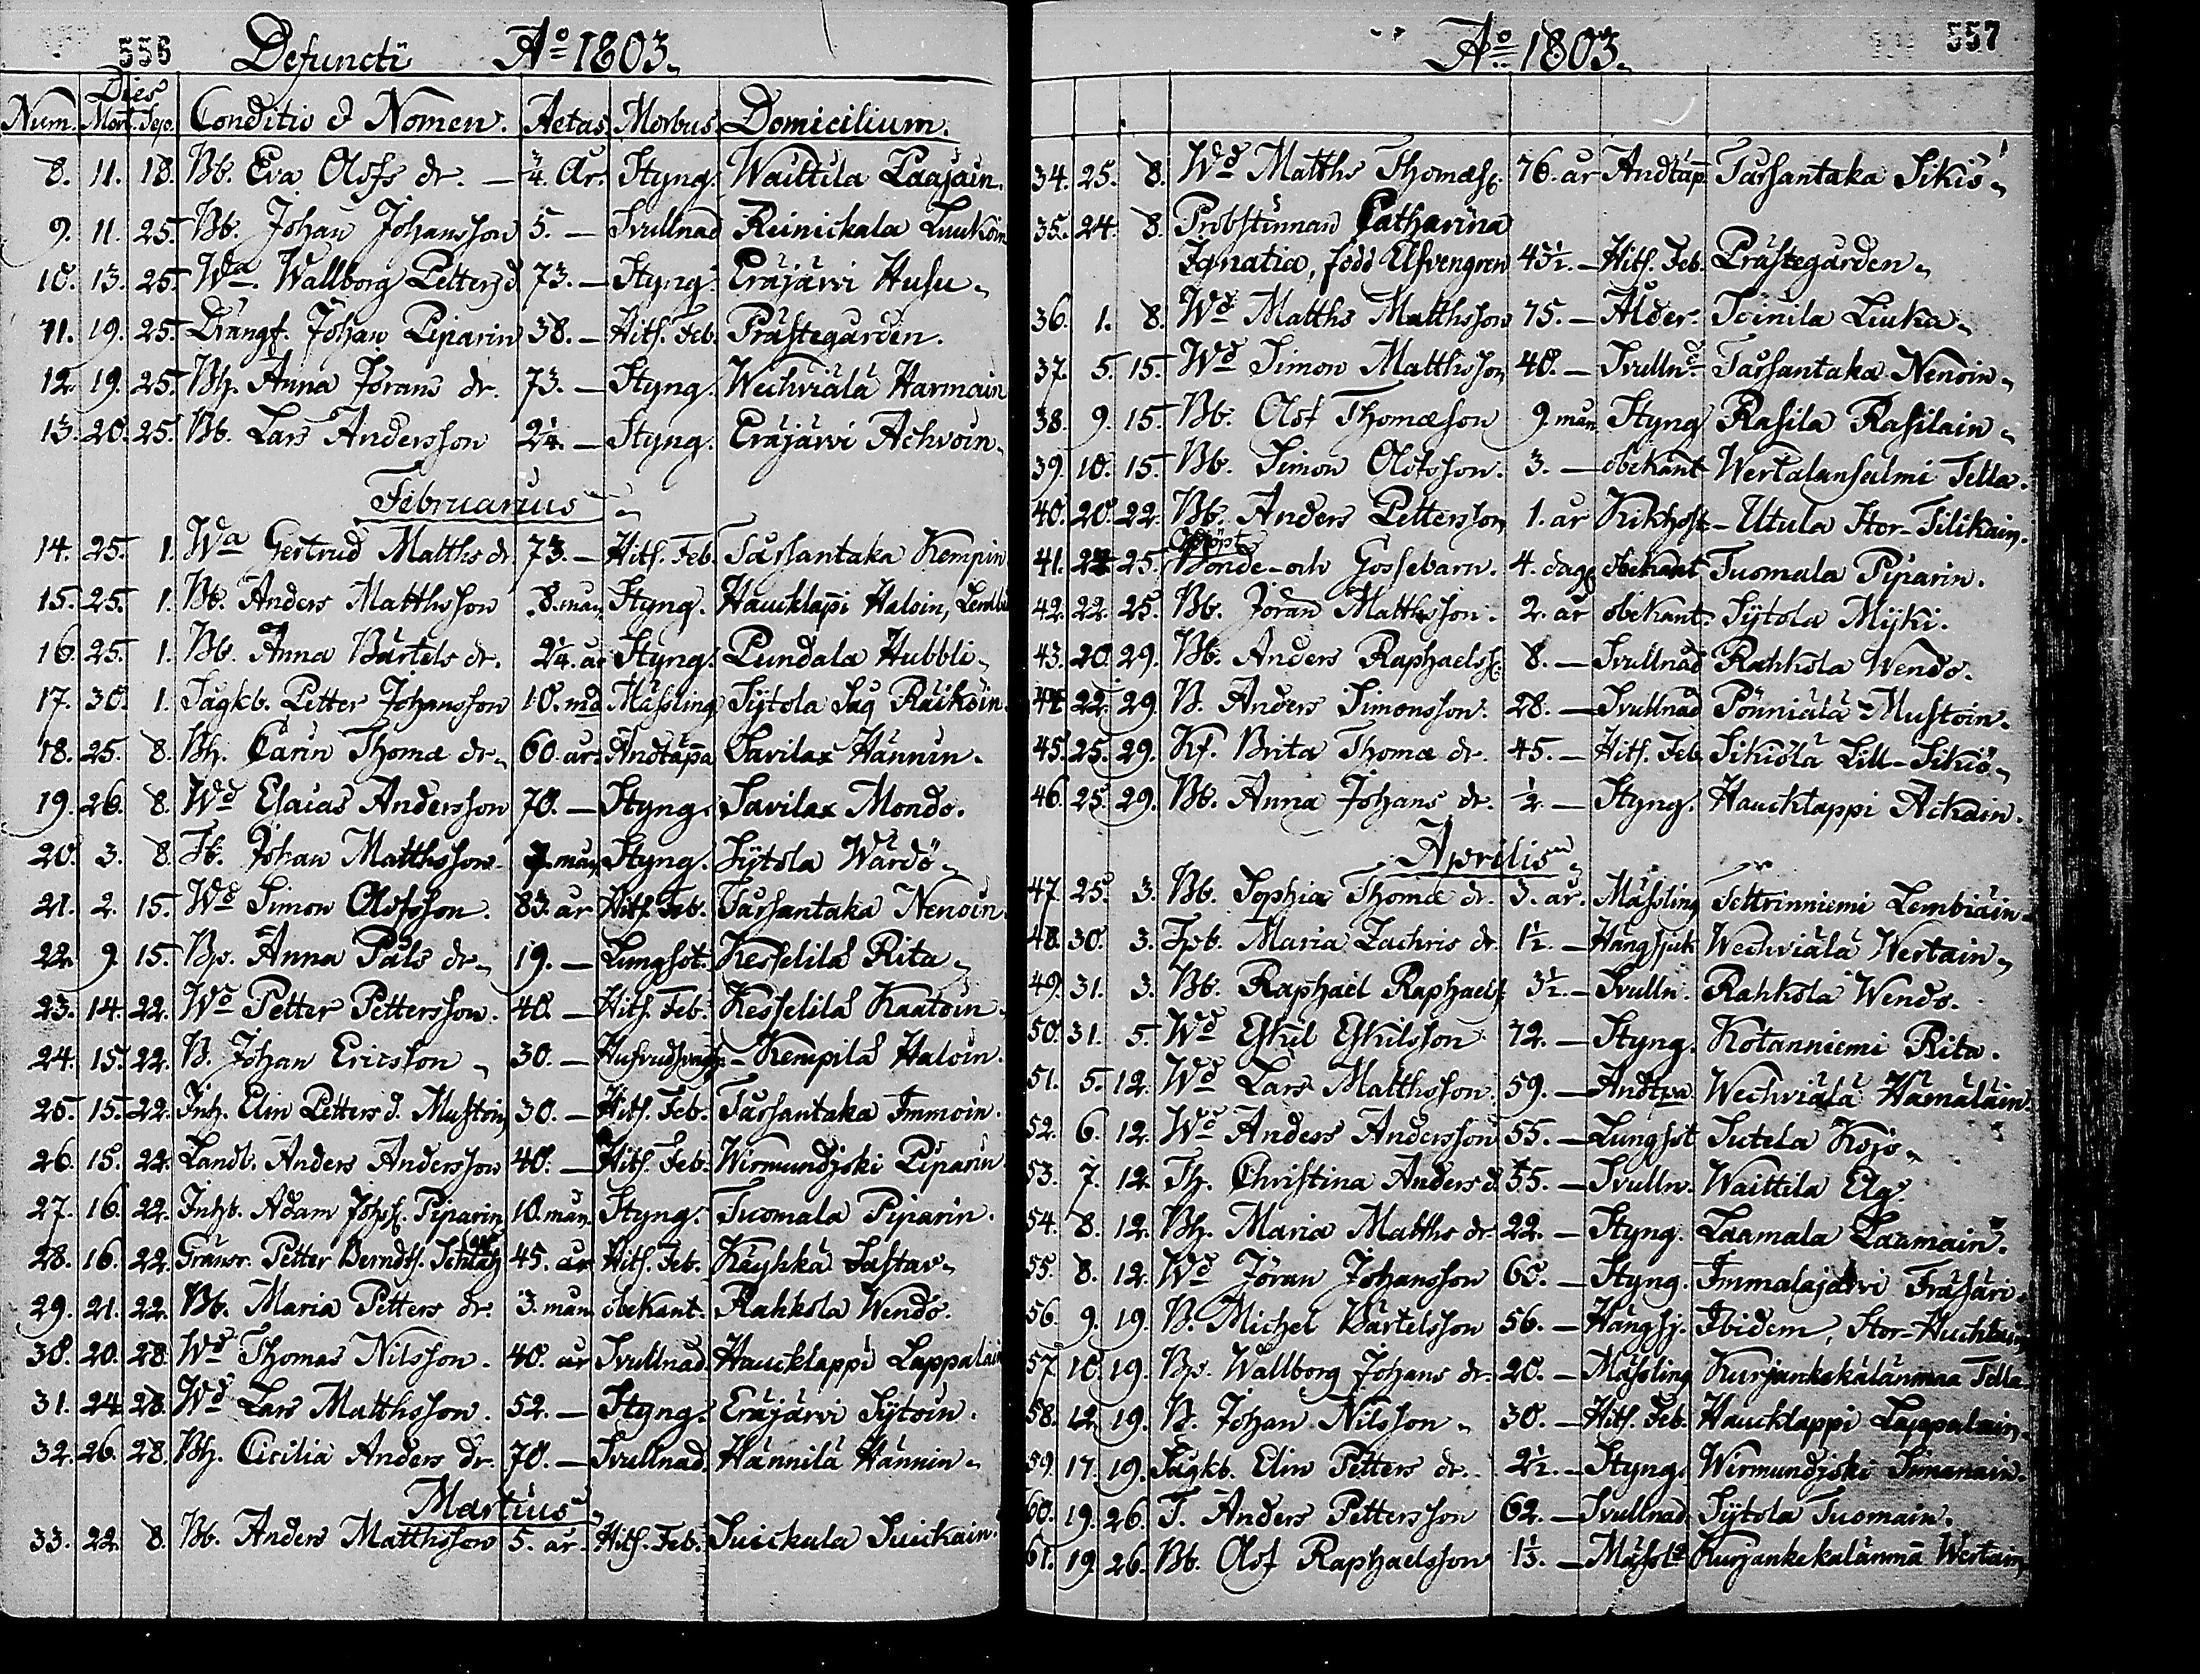 556 Defuncti Aº 1803.
Dies
Num. Mort. Sep. Conditio & Nomen. Aetas Morbus Domicilium.
8. 11. 18. Bb. Eva Olofs dr. — ¾. År. Styng. Waittila Laajain.
9. 11. 25. Bb. Johan Johansson 5. — Svullnad Reinickala Luukoin
10. 13. 25. Wa. Wallborg Petters d. 73. — Styng. Eräjärvi Husu.
11. 19. 25. Drängf. Johan Piparin 38. — Hits. Feb. Prästegården.
12. 19. 25. Bh. Anna Jörans dr. 73. — Styng. Wechviälä Harmain
13. 20. 25. Bb. Lars Andersson 2¼. — Styng. Eräjärvi Achvoin.
Februarius
14. 25. 1. Wa Gertrud Matths dr. 73. — Hits. Feb. Tarsantaka Kempin
15. 25. 1. Bb. Anders Matthsson 8. mån. Styng. Haucklappi Haloin,
16. 25. 1. Bb. Anna Bärtels dr. 2¼. år Styng. Pundala Hubbli.
17. 30. 1. Sågkb. Petter Johansson 10. md Mässling Sytola Såg Räiköin.
18. 25. 8. Bh. Carin Thomæ dr. 60. år. Andtäpa Savilax Hännin.
19. 26. 8. Wd Elaias Andersson 70. — Styng. Savilax Mondo.
20. 3. 8. Tb. Johan Matthsson 7. mån. Styng. Sytola Wärdö.
21. 2. 15. Wd Simon Olofsson. 83. år Hits. Feb. Tarsantaka Nenoin
22. 9. 15. Bp. Anna Påls dr. 19. — Lungsot. Kesselilä Rita.
23. 14. 22. Wd Petter Pettersson. 40. — Hits. Feb. Kesselilä Kaatoin.
24. 15. 22. B. Johan Ericsson. 30. — Kempilä Haloin.
25. 15. 22. Inh. Elin Petters d. Mustoin 30. — Hits. Feb. Tarsantaka Immoin.
26. 15. 22. Landb. Anders Andersson 40. — Hits. Feb. Wirmundjoki Piparin
27. 16. 22. Inhb. Adam Johss. Piparin 10. mån. Styng. Tuomala Piparin.
28. 16. 22. Gränsr. Petter Berndts. 45. år Hits. Feb. Käyhkä Sastav.
29. 21. 22. Bb. Maria Petters dr. 3. mån obekant. Rahkola Wendo.
30. 20. 28. Wd Thomas Nilsson. 40. år Svullnad. Haucklappi Lappalain
31. 24. 28. Wd Lars Matthsson. 52. — Styng. Eräjärvi Sytoin.
32. 26. 28. Bh. Cicilia Anders dr. 70. — Svullnad. Hännilä Hännin.
Martius
33. 22. 8. Bb. Anders Matthsson 5. år. Hits. Feb. Suickala Suickain.
Aº 1803. 557
34. 25. 8. Wd Matths Thomæs. 76. år Andtäp. Tarsantaka Sikiö.
35. 24. 8. Probstinnan Catharina
Ignatia, född Elfvengren 43½. — Hits. Feb. Prästegården.
36. 1. 8. Wd Matths Matthsson 75. — Ålder. Toinila Liuka.
37. 5. 15. Wd Simon Matthsson 40. — Svulln.d Tarsantaka Nenoin.
38. 9. 15. Bb. Olof Thomæson 9. mån. Styng Rasila Rasilain.
39. 10. 15. Bb. Simon Olofsson. 3. — obekant Wertalansalmi Tella.
40. 20. 22. Bb. Anders Pettersson 1. år Kikhost — Utula Stor-Tilikain.
41. 22 25. Odöpt Bonde- Gossebarn. 4. dag. obekant Tuomala Piparin.
42. 22. 25. Bb. Jöran Matthsson. 2. år obekant. Sytola Myki.
43. 20. 29. Bb. Anders Raphaelss. 8. — Svullnad Rahkola Wendo.
44. 22. 29. B. Anders Simonsson. 28. — Svullnad Pönniälä Mustoin.
45. 25. 29. Kf. Brita Thomæ dr. 45. — Hits. Feb. Sikiölä Lill-Sikiö.
46. 25. 29. Bb. Anna Johans dr. ½. — Styng. Haucklappi Ackain.
Aprilis
47. 25. 3. Bb. Sophia Thomæ dr. 3. år. Mässling Settrinniemi Lembiäin.
48. 30. 3. Maria Zachris dr. 1½. — Wechviälä Wertain.
49. 31. 3. Bb. Raphaël Raphaels. 3½. — Svulln. Rahkola Wendo.
50. 31. 5. Wd Eskil Eskilsson. 72. — Styng. Kotanniemi Rita.
51. 5. 12. Wd Lars Matthsson. 59. — Andtpa Wechviälä Hämäläin.
52. 6. 12. Wd Anders Andersson 55. — Lungsot Sutela Kojo.
53. 7. 12. Th. Christina Anders d. 55. — Svulln. Waittila Elg.
54. 8. 12. Bh. Maria Matths dr. 22. — Styng. Laamala Laamain.
55. 8. 12. Wd Jöran Johansson 65. — Styng. Immalajärvi Fräsäri.
56. 9. 19. B. Michel Bärtelsson 56. — Ibidem, Stor-Huchtain
57. 10. 19. Bp. Wallborg Johans dr. 20. — Mässling Kurjankskälänmaa Tella.
58. 12. 19. B. Johan Nilsson. 30. — Hits. Feb. Haucklappi Lappalain.
59. 17. 19. Sågkb. Elin Petters dr. 2½. — Styng. Wirmundjoki Simanain.
60. 19. 26. T. Anders Pettersson 62. — Svullnad. Sytola Tuomain.
61. 19. 26. Bb. Olof Raphaelsson 1⅓. — Kurjankekälänmä Wertain